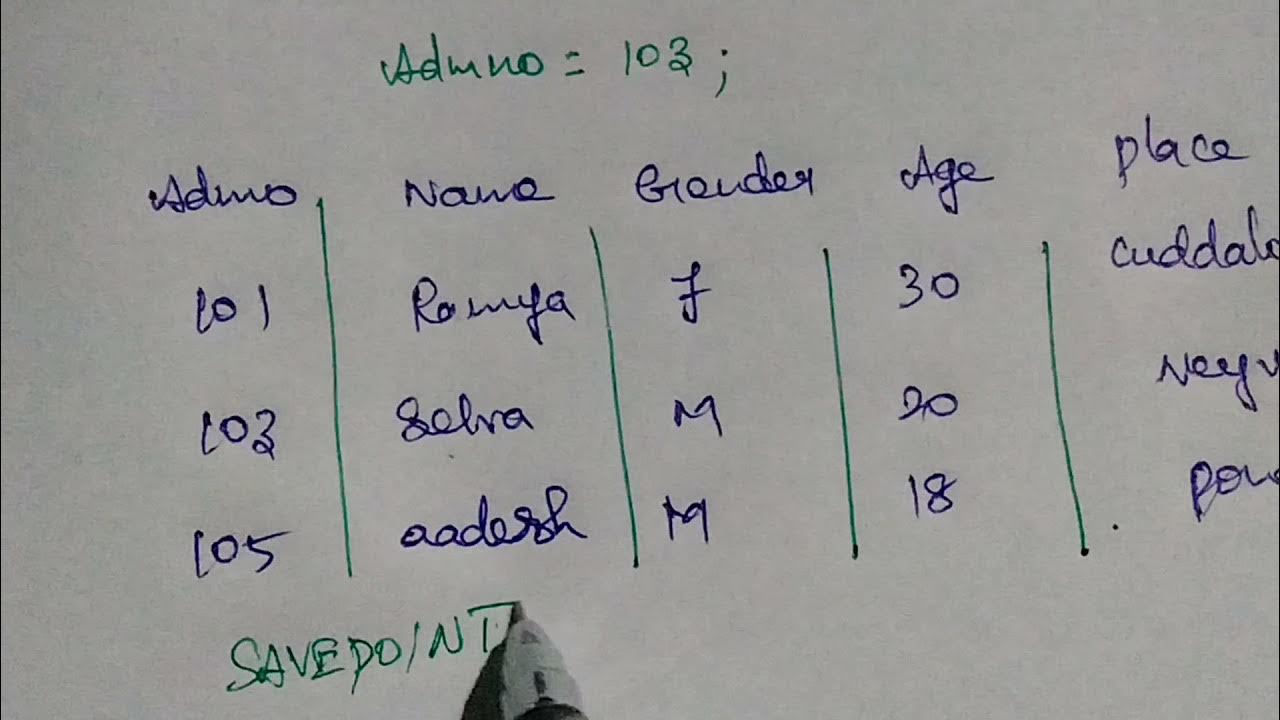 Admno = 103;
Admo Name Gender Age place
101 Ramya F 30 cuddalo
103 Selva M 20 Neyv
105 aadesh M 18 pon
SAVEPOINT